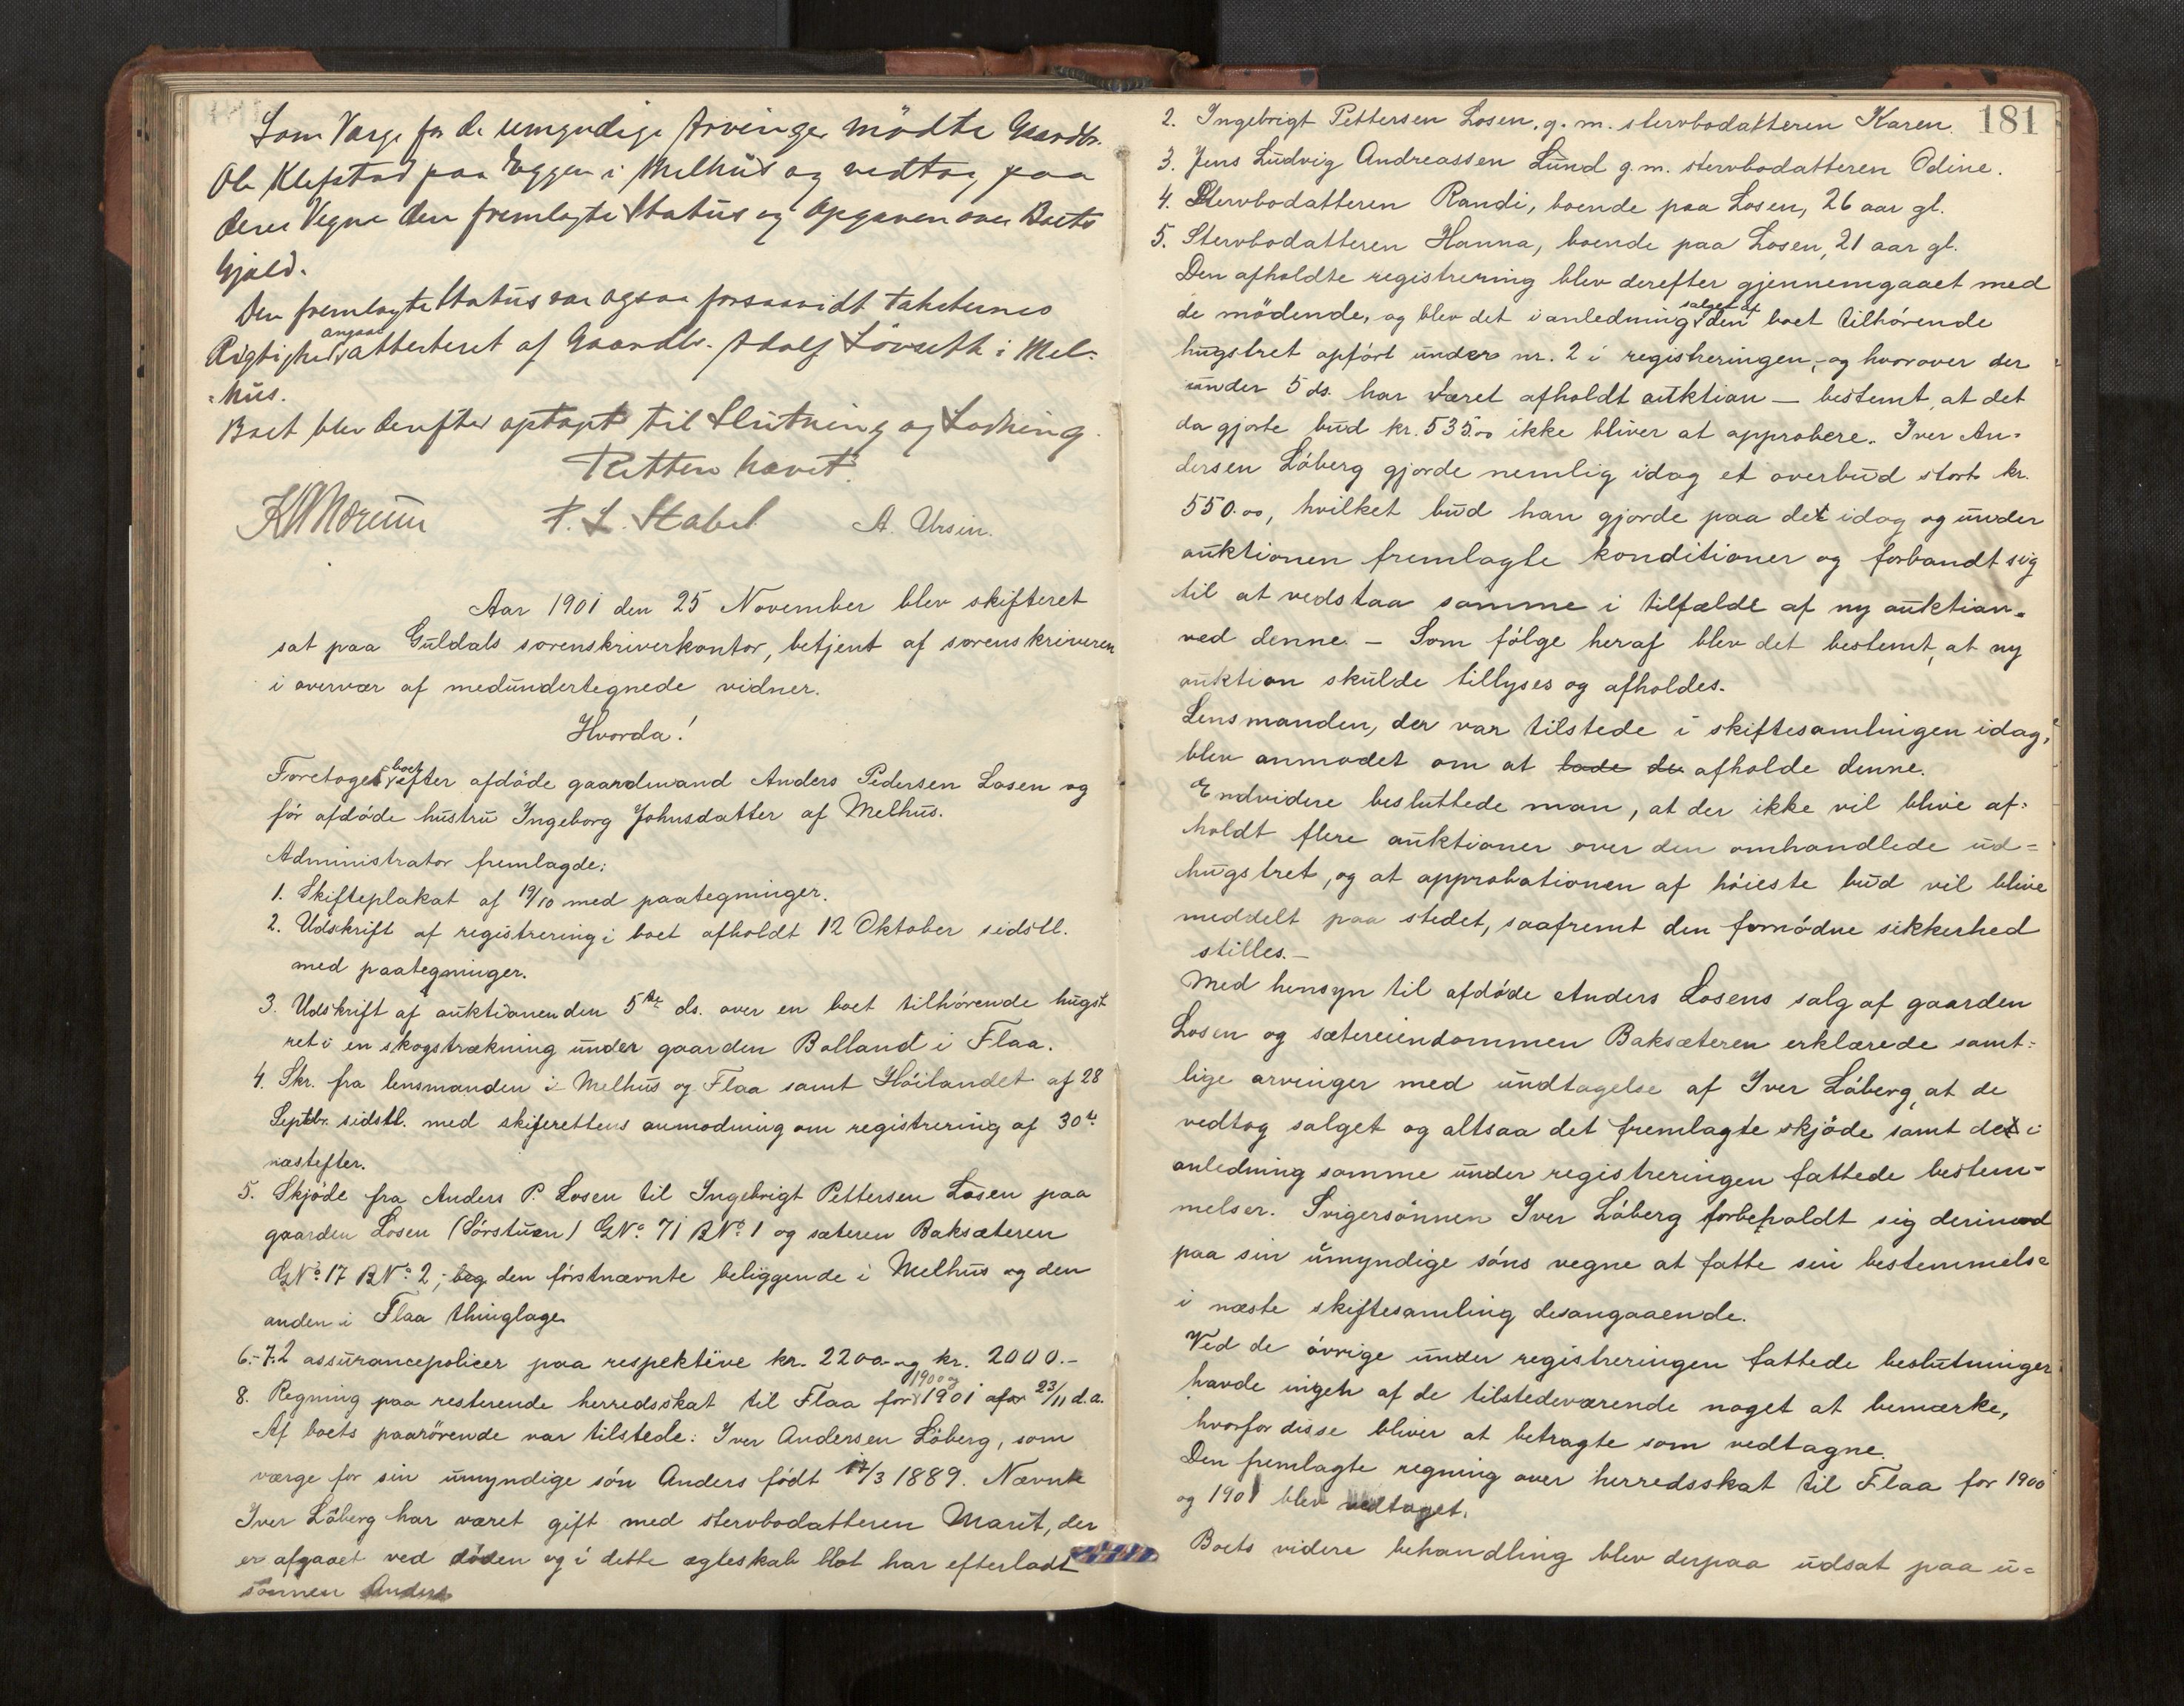 Som Værge for de umyndige Arvinger mödte Gaardbr.
Ole Klefstad paa Eggen i Melhus og vedtog paa
deres Vegne den fremlagte Status og Opgaven over Boets
Gjæld.
Den fremlagte Status var ogsaa forsaavidt taksternes
Rigtighed angaar attesteret af Gaardbr. Adolf Lövseth i Mel-
-hus.
Boet blev derefter optaget til Slutning og Lodning.
Retten hævet.
P. L. Stabel A. Ursin.
Aar 1901 den 25 November blev skifteret
sat paa Guldals sorenskriverkontor, betjent af sorenskriveren
i overvær af medundertegnede vidner.
Hvorda!
Foretoges boet efter afdöde gaardmand Anders Pedersen Losen og
för afdöde hustru Ingeborg Johnsdatter af Melhus.
Administrator fremlagde:
1. Skifteplakat af 19/10 med paategninger.
2. Udskrift af registrering i boet afholdt 12 Oktober sidstl.
med paategninger.
3. Udskrift af auktionen den 5te ds. over en boet tilhörende hugst
ret i en skogstrækning under gaarden Bolland i Flaa.
4. Skr. fra lensmanden i Melhus og Flaa samt Höilandet af 28
Septbr. sidstl. med skifterettens anmodning om registrering af 30te
næstefter.
5. Skjöde fra Anders P. Losen til Ingebrigt Pettersen Losen paa
gaarden Losen (Sörstuen) GNo. 71 BNo. 1 og sæteren Baksæteren
GNo. 17 BNo. 2, beg den förstnævnte beliggende i Melhus og den
anden i Flaa thinglage.
6.-7. 2 assurancepolicer paa respektive kr. 2200.- og kr. 2000.-
8. Regning paa resterende herredsskat til Flaa for 1900 og 1901 af 23/11 d.a.
Af boets paarörende var tilstede: Iver Andersen Löberg, som
værge for sin umyndige sön Anders födt 17/3 1889. Nævnte
Iver Löberg har været gift med stervbodatteren Marit, der
er afgaaet ved döden og i dette ægteskab blot har efterladt
sönnen Anders
181
2. Ingebrigt Pettersen Losen, g. m. stervbodatteren Karen.
3. Jens Ludvig Andreassen Lund g. m. stervbodatteren Odine.
4. Stervbodatteren Randi, boende paa Losen, 26 aar gl.
5. Stervbodatteren Hanna, boende paa Losen, 21 aar gl.
Den afholdte registrering blev derefter gjennemgaaet med
de mödende, og blev det i anledning salget af den boet tilhörende
hugstret opfört under nr. 2 i registreringen, og hvorover der
under 5 ds. har været afholdt auktion — bestemt, at det
da gjorte bud kr. 535.00 ikke bliver at approbere. Iver An-
dersen Löberg gjorde nemlig idag et overbud stort kr.
550.00, hvilket bud han gjorde paa det idag og under
auktionen fremlagte konditioner og forbandt sig
til at vedstaa samme i tilfælde af ny auktion
ved denne. — Som fölge heraf blev det bestemt, at ny
auktion skulde tillyses og afholdes.
Lensmanden, der var tilstede i skiftesamlingen idag,
blev anmodet om at lade de afholde denne.
Endvidere besluttede man, at der ikke vil blive af-
holdt flere auktioner over den omhandlede ud-
hugstret, og at approbationen af höieste bud vil blive
meddelt paa stedet, saafremt den fornödne sikkerhed
stilles.—
Med hensyn til afdöde Anders Losens salg af gaarden
Losen og sætereiendommen Baksæteren erklærede samt-
lige arvinger med undtagelse af Iver Löberg, at de
vedtog salget og altsaa det fremlagte skjöde samt det i
anledning samme under registreringen fattede bestem-
melser. Svigersönnen Iver Löberg forbeholdt sig derimod
paa sin umyndige söns vegne at fatte sin bestemmelse
i næste skiftesamling desangaaende.
Ved de övrige under registreringen fattede beslutninger
havde ingen af de tilstedeværende noget at bemærke,
hvorfor disse bliver at betragte som vedtagne.
Den fremlagte regning over herredsskat til Flaa for 1900
og 1901 blev vedtaget.
Boets videre behandling blev derpaa udsat paa u-